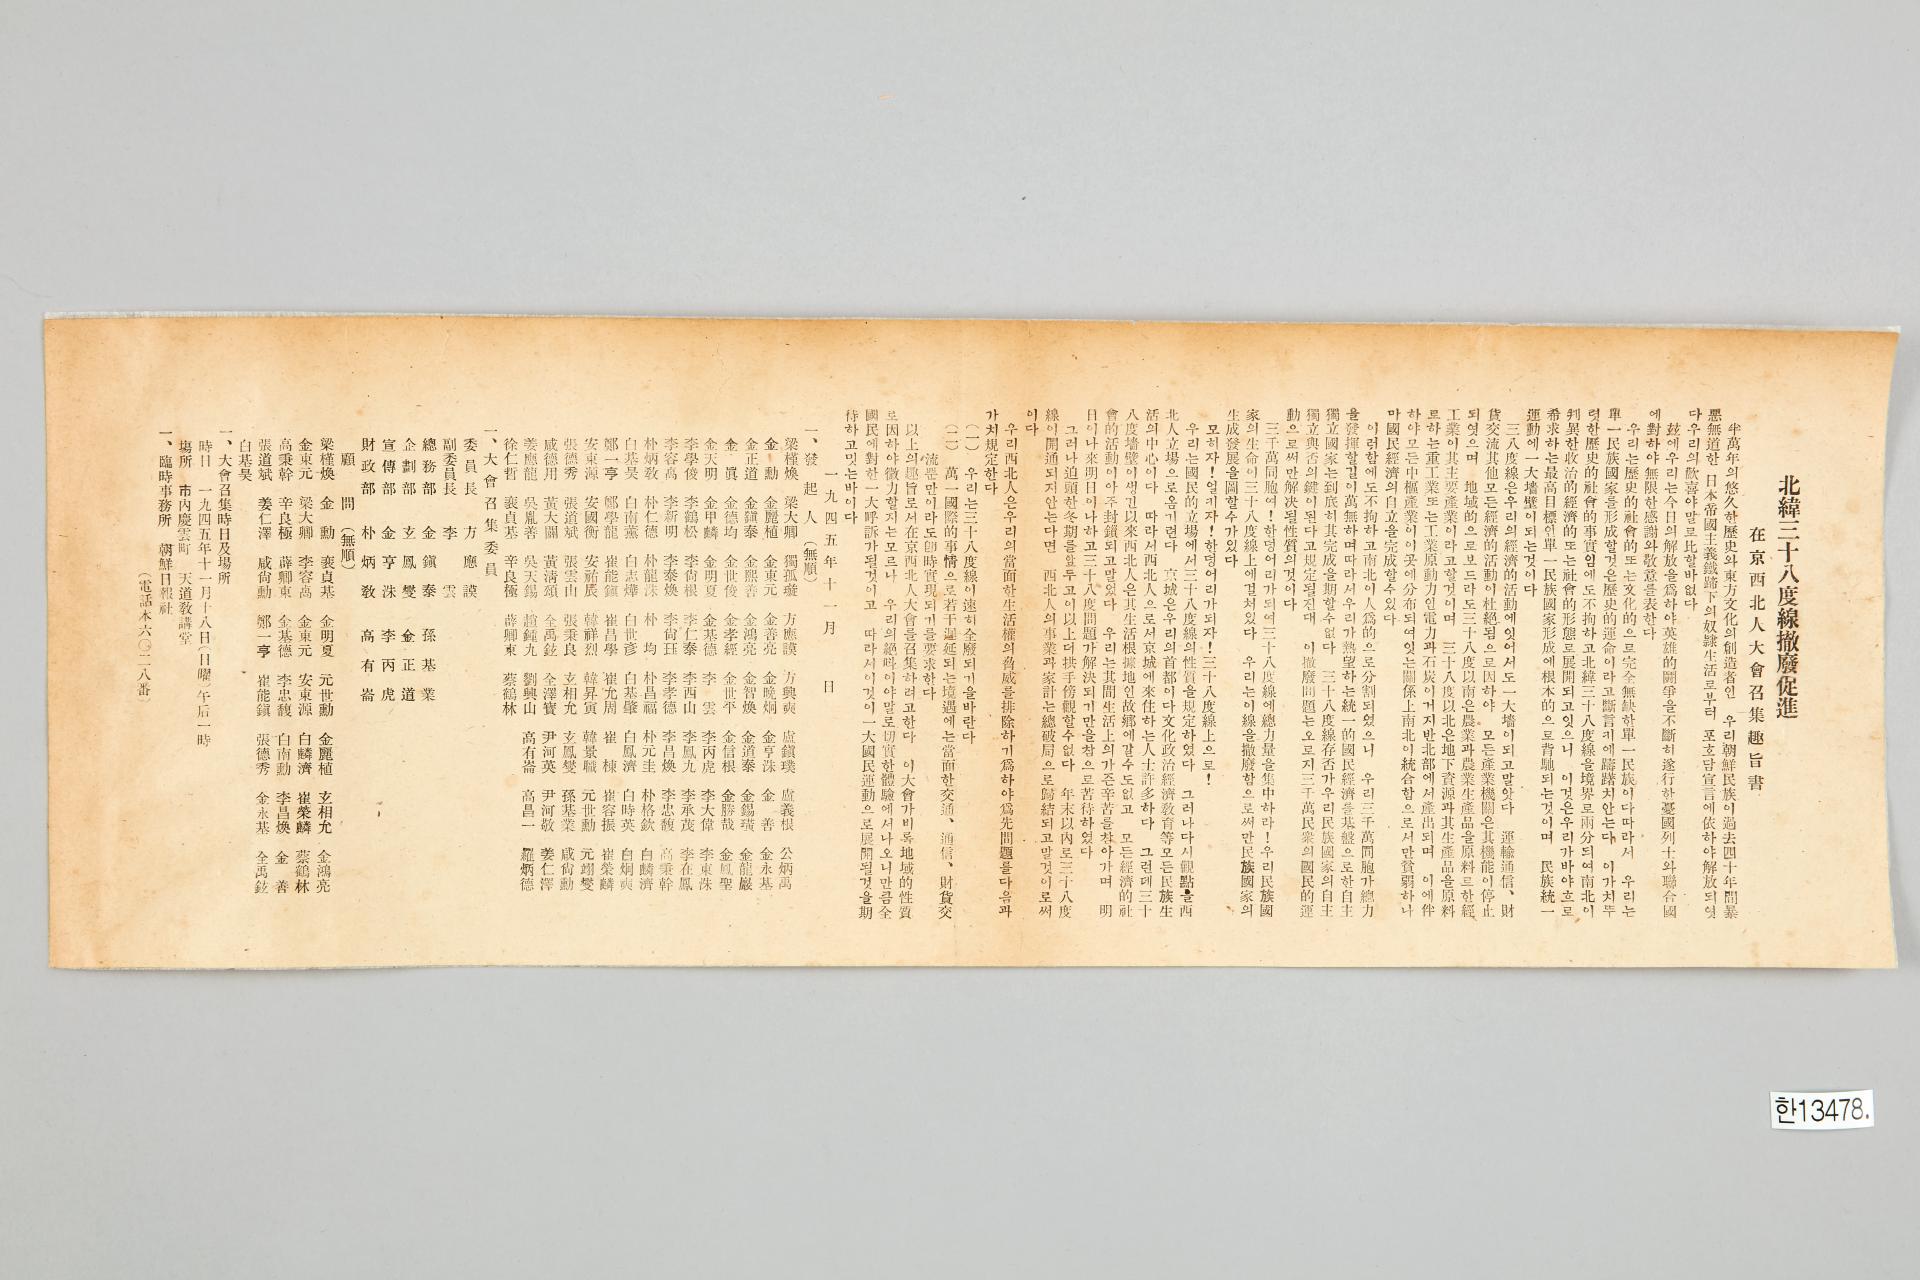 北緯三十八度線撤廢促進
在京西北人大會召集趣旨書
半萬年의悠久한歷史와東方文化의創造者인 우리朝鮮民族이過去四十年間暴
惡無道한 日本帝國主義鐵蹄下의奴隷生活로부터 포쓰담宣言에依하야解放되엿
다우리의歡喜야말로比할바없다
玆에우리는今日의解放을爲하야英雄的鬪爭을不斷히遂行한憂國列士와聯合國
에對하야無限한感謝와敬意를表한다
우리는歷史的社會的또는文化的으로完全無缺한單一民族이다따라서 우리는
單一民族國家를形成할것은歷史的運命이라고斷言키에躊躇치안는다 이가치뚜
렷한歷史的社會的事實임에도不拘하고北緯三十八度線을境界로兩分되여南北이
判異한政治的經濟的또는社會的形態로展開되고잇으니 이것은우리가바야흐로
希求하는最高目標인單一民族國家形成에根本的으로背馳되는것이며 民族統一
運動에一大墻壁이되는것이다
三八度線은우리의經濟的活動에잇어서도一大墻이되고말앗다 運輸通信、財
貨交流其他모든經濟的活動이杜絕됨으로因하야、모든產業機關은其機能이停止
되엿으며 地域的으로보드라도三十八度以南은農業과農業生產品을原料르한輕
工業이其主要產業이라고할것이며 三十八度以北은地下資源과其生產品을原料
로하는重工業또는工業原動力인電力과石炭이거지반北部에서產出되며 이에伴
하야모든中樞產業이이곳에分布되여잇는關係上南北이統合함으로서만貧弱하나
마國民經濟의自立을完成할수있다
이런함에도不拘하고南北이人爲的으로分割되였으니 우리三千萬同胞가總力
을發揮할길이萬無하며따라서우리가熱望하는統一的國民經濟를基盤으로한自主
獨立國家는到底히其完成을期할수없다 三十八度線存否가우리民族國家의自主
獨立與否의鍵이된다고規定될진대 이撤廢問題는오로지三千萬民衆의國民的運
動으로써만解決될性質의것이다
三千萬同胞여!한덩어리가되여三十八度線에總力量을集中하라!우리民族國
家의生命이三十八度線上에걸처있다 우리는이線을撤廢함으로써만民族國家의
生成發展을圖할수가있다
모히자!얼키자!한덩어리가되자!三十八度線上으로!
우리는國民的立場에서三十八度線의性質을規定하였다 그러나다시觀點을西
北人立場으로옴기련다 京城은우리의首都이다文化政治經濟敎育等모든民族生
活의中心이다 따라서西北人으로서京城에來住하는人士許多하다 그런데三十
八度墻壁이생긴以來西北人은其生活根據地인故鄕에갈수도없고 모든經濟的社
會的活動이아주封鎖되고말었다 우리는其間生活上의가즌辛苦를참아가며 明
日이나來明日이나하고三十八度問題가解決되기만을참으로苦待하였다
그러나迫頭한冬期를앞두고이以上더拱手傍觀할수없다 年末以內로三十八度
線이開通되지안는다면 西北人의事業과家計는總破局으로歸結되고말것이로써
이다
우리西北人은우리의當面한生活權의脅威를排除하기爲하야爲先問題를다음과
가치規定한다
(一) 우리는三十八度線이速히全廢되기을바란다
(二) 萬一國際的事情으로若干遲延되는境遇에는當面한交通、通信、財貨交
流뿐만이라도卽時實現되기를要求한다
以上의趣旨로서在京西北人大會를召集하려고한다 이大會가비록地域的性質
로因하야微力할지는모르나 우리의絕叫이야말로切實한體驗에서나오니만큼全
國民에對한一大呼訴가될것이고 따라서이것이一大國民運動으로展開될것을期
待하고밋는바이다
一九四五年十一月 日
一、發起人(無順)
梁槿煥 梁大卿 獨孤璇 方應謨 方興奭 盧鎭璞 盧義根 公炳禹
金勳 金麗植 金東元 金善亮 金晩炯 金亨洙 金善 金永基
金正道 金鎭泰 金熙善 金鴻亮 金智煥 金道泰 金錫璜 金龍巖
金眞 金德均 金世俊 金孝經 金世平 金信根 金勝哉 金鳳聖
金天明 金甲麟 金明夏 金基德 李雲 李丙虎 李大偉 李東洙
李學俊 李鶴松 李尙根 李仁泰 李酉山 李鳳九 李承茂 李在鳳
李容高 李新明 李泰煥 李尙玨 李孝德 李昌煥 李忠馥 高秉幹
朴炳敎 朴仁德 朴龍洙 朴均 朴昌福 朴元圭 朴格欽 白麟濟
白基昊 白南薰 白志燁 白世彥 白基肇 白鳳濟 白時英 白炯奭
鄭一亨 鄭學龍 崔能鎭 崔昌學 崔允周 崔棟 崔容振 崔榮麟
安東源 安國衡 安祐辰 韓祥烈 韓昇寅 韓景職 元世勳 元翊燮
張德秀 張道斌 張雲山 張秉良 玄相允 玄鳳燮 孫基業 咸尙勳
咸德用 黃大闢 黃淸頌 全禹鉉 全澤寶 尹河英 尹河敬 姜仁澤
姜應龍 吳胤善 吳天錫 趙鍾九 劉興山 高有崙 高昌一 羅炳德
徐仁哲 裵貞基 辛良極 薛卿東 蔡鶴林
一、大會召集委員
委員長 方應謨
副委員長 李雲
總務部 金鎭泰 孫基業
企劃部 玄鳳燮 金正道
宣傳部 金亨洙 李丙虎
財政部 朴炳敎 高有崙
顧問(無順)
梁槿煥 金勳 裵貞基 金明夏 元世勳 金麗植 玄相允 金鴻亮
金東元 梁大卿 李容高 金東元 安東源 白麟濟 崔榮麟 蔡鶴林
高秉幹 辛良極 薛卿東 金基德 李忠馥 白南勳 李昌煥 金善
張道斌 姜仁澤 咸尙勳 鄭一亨 崔能鎭 張德秀 金永基 全禹鉉
白基昊
一、大會召集時日及場所
時日 一九四五年十一月十八日(日曜)午后一時
場所 市內慶雲町 天道敎講堂
一、臨時事務所 朝鮮日報社
(電話本六〇二八番)
한13478.